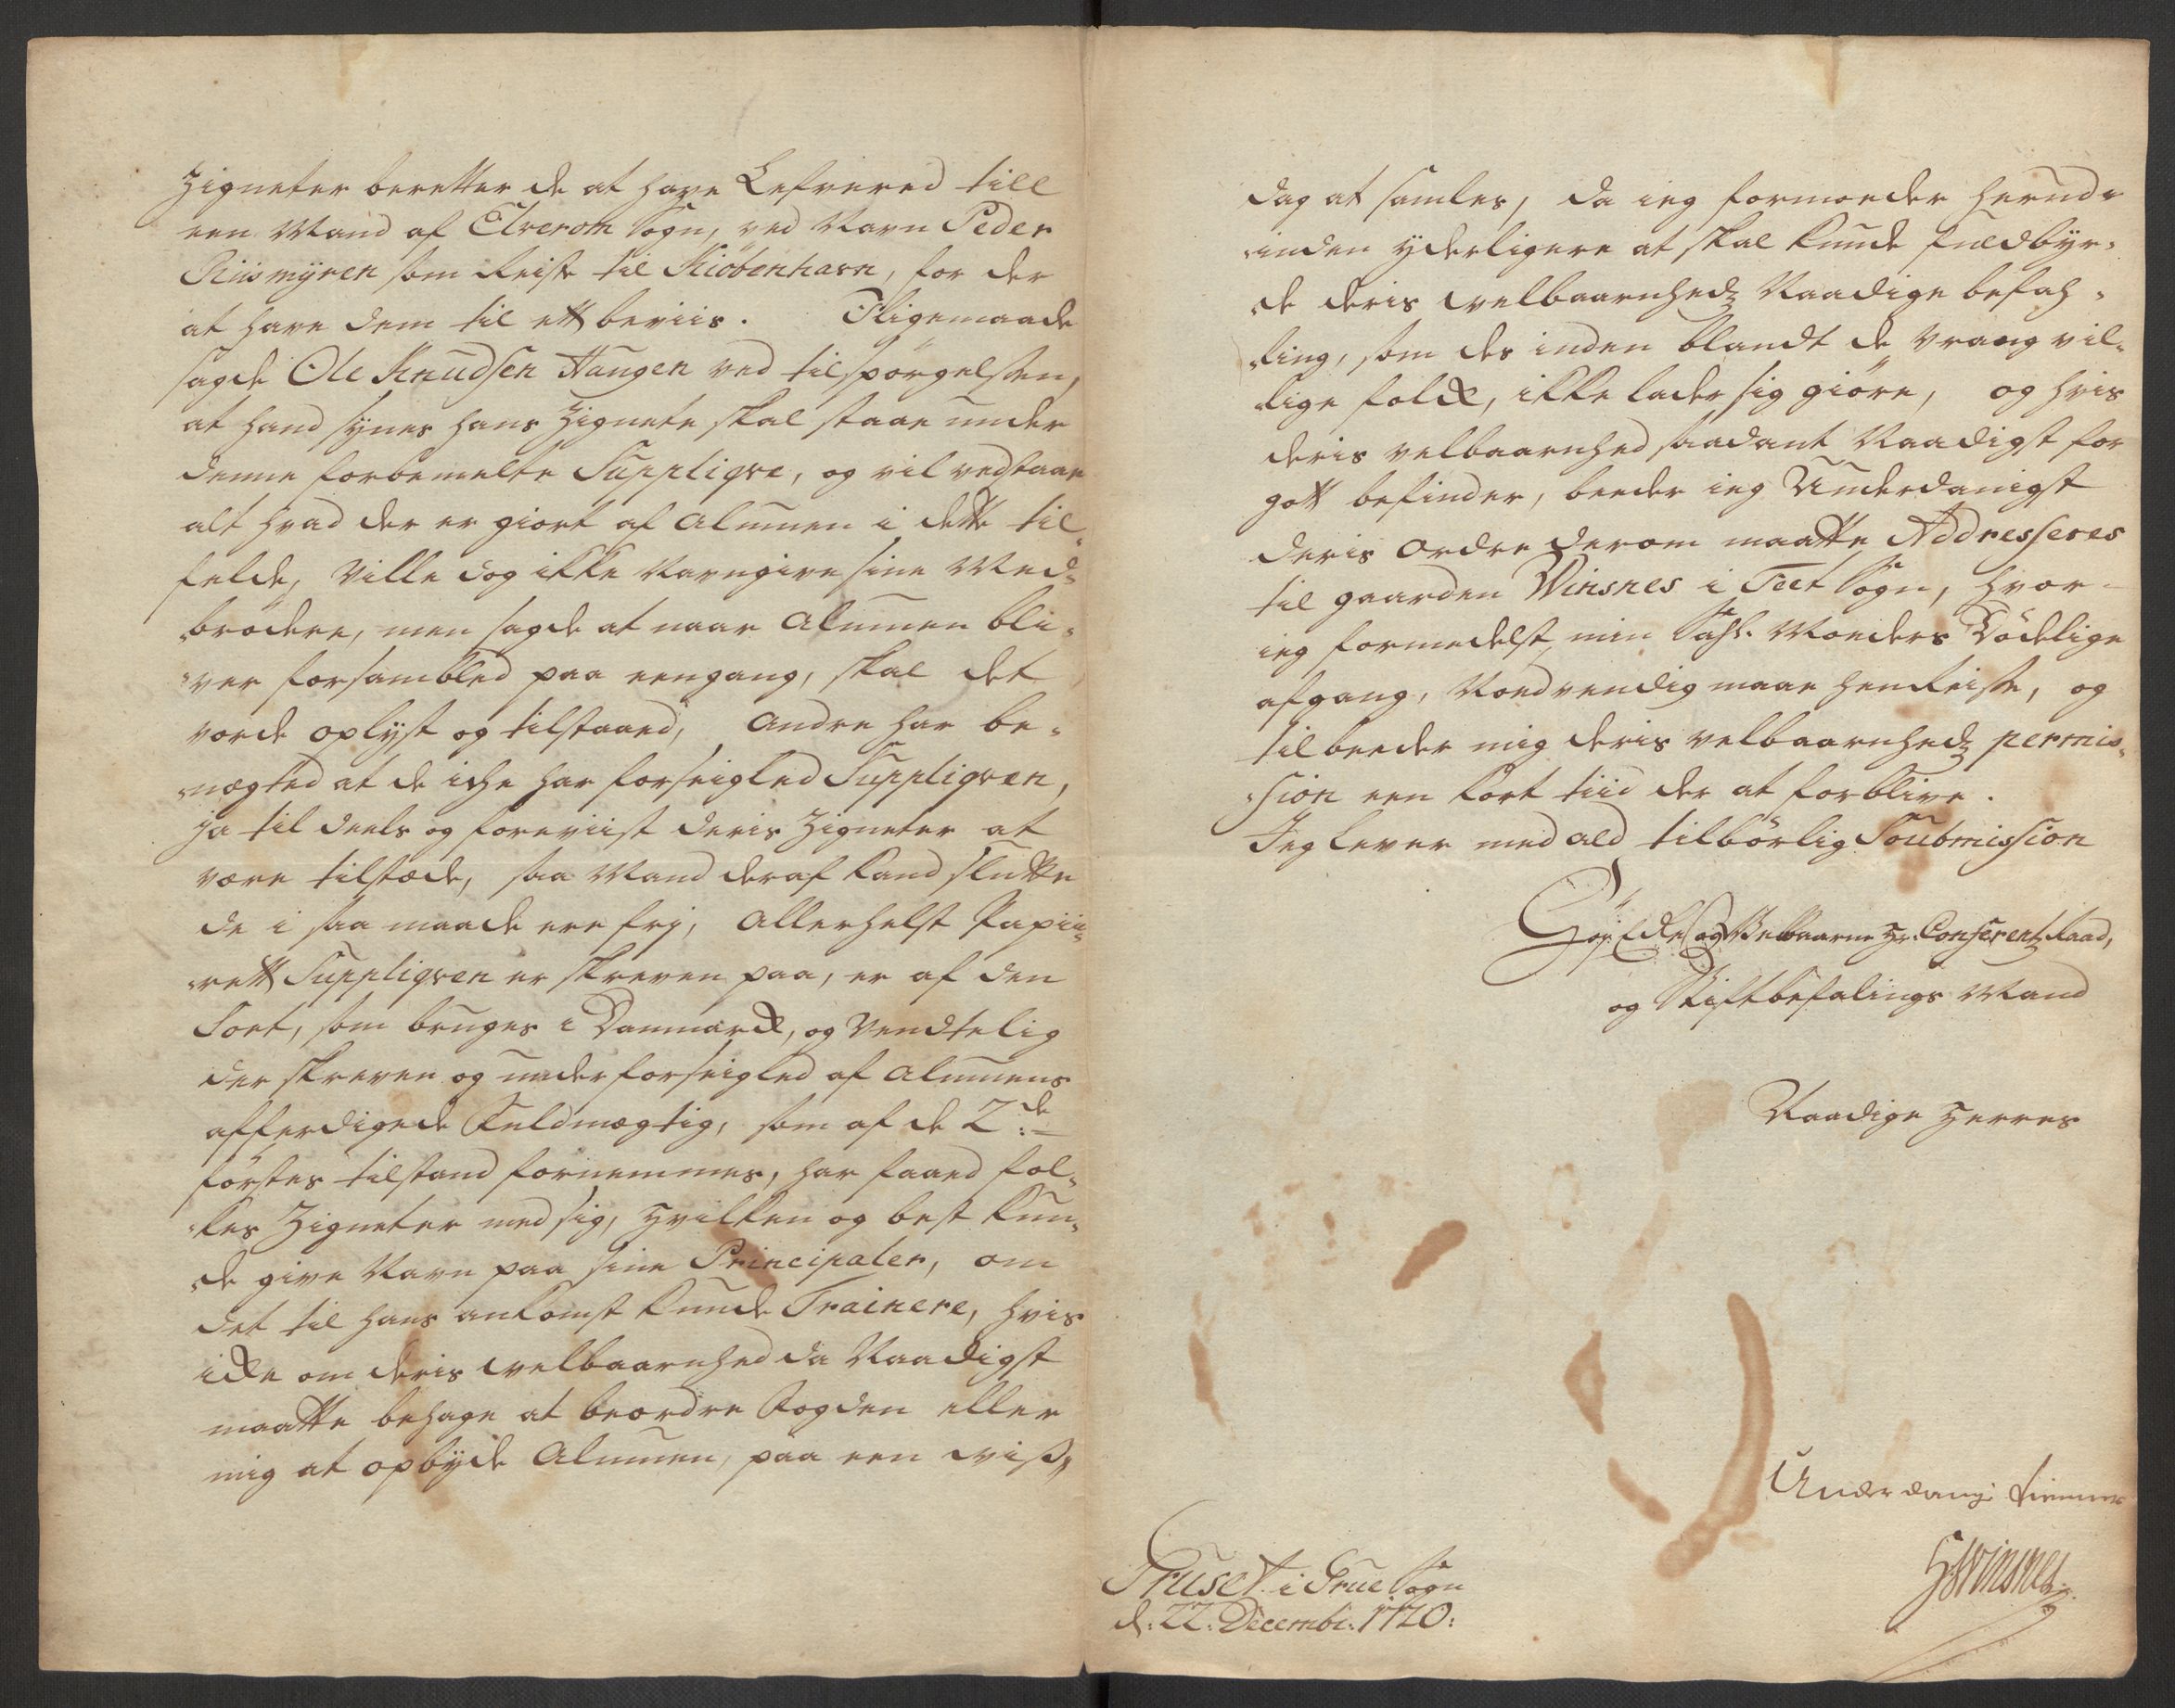 Zigneter beretter de at have Lefvered till
een Mand af Elverom Sogn, ved Navn Peder
Riismÿren som Reiste til Kiöbenhavn, for der
at have dem til ett beviis. Sligemaade
sagde Ole Knudsen Haugen ved tilspörgelsen,
at hand sÿnes hans Zignete skal staae under
denne forbemelte Suppliqve, og vil vedstaae
alt hvad der er giort af Almuen i dette til¬
felde, Ville dog ikke Navngive sine Med¬
brödere, men sagde at naar Almuen bli¬
ver forsambled paa eengang, skal det
vorde oplÿst og tilstaaed, Andre har be¬
nægted at de iche har forseigled Suppliqven,
ja til deels og foreviist deris Zigneter at
være tilstæde, saa Mand deraf kand slutte
de i saa maade ere frj, Allerhelst Papii¬
rett Suppliqven er skreven paa, er af den
Sort, som bruges i Danmarck, og Vendtelig
der skreven og underforseigled af Almuens
affærdigede Fuldmægtig, som af de 2de
förstes tilstand fornemmes, har faaed fol¬
kes Zigneter med sig, Hvilken og best kun¬
de give Navn paa sine Principaler, om
det til hans ankomst kunde Trainere, hvis
icke om deris Velbaarnhed da Naadigst
maatte behage at beordre Fogden eller
mig at opbÿde Almuen, paa een viss,
dag at samles, da ieg formoeder herud¬
inden ÿderligere at skal kunde fuldbÿr¬
de deris Velbaarnhedz Naadige befah¬
ling, som des inden blandt de vrangvil¬
lige folck, ikke lader sig giöre, og hvis
deris Velbaarnhed saadant Naadigst for
gott befinder, beeder ieg Underdanigst
deris Ordre derom maatte Addresseres
til gaarden Winsnes i Feet Sogn, hvor
ieg formedelst min Sahl. Moeders Dödelige
afgang, Noedvendig maae henReise, og
tilbeeder mig deris Velbaarnhedz permis¬
sion een kort tiid der at forblive.
Jeg lever med ald tilbörlig Soubmission
HöyEdle og Velbaarne Hr. Conferentz Raad,
og Stiftbefalings Mand
Naadige Herres
Underdanig tienner
HWinsnes
Gruset i Grue Sogn
d: 22. Decembr: 1720: